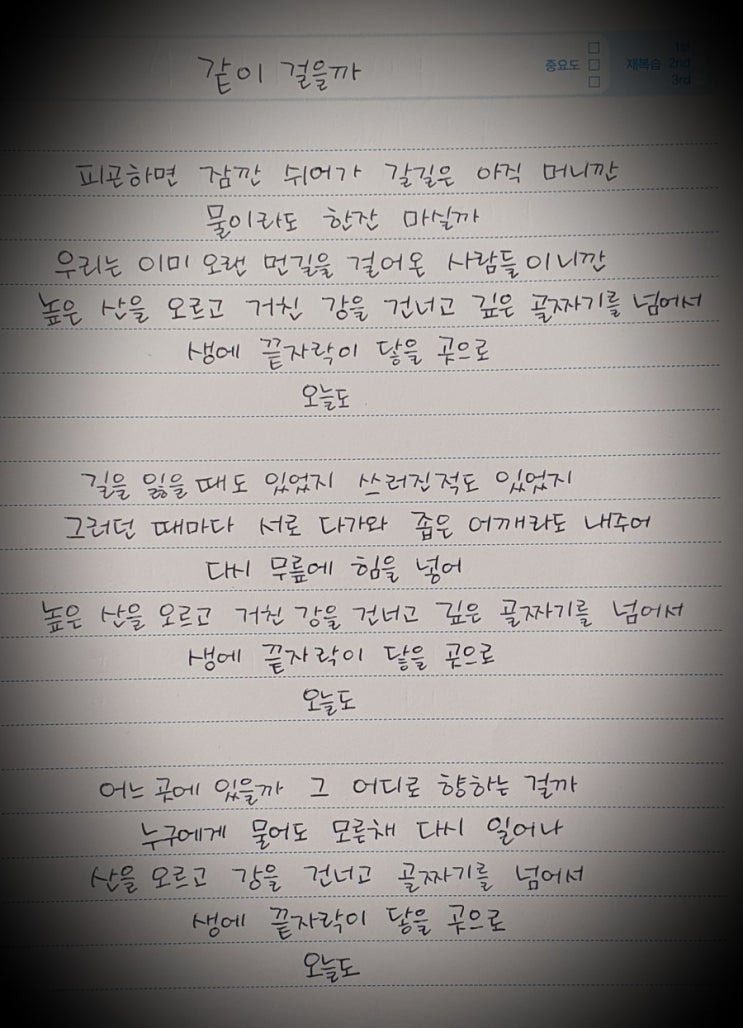 같이 걸을까
중요도
재복습 1st
2nd
3rd
피곤하면 잠깐 쉬어가 갈길은 아직 머니깐
물이라도 한잔 마실까
우리는 이미 오랜 먼길을 걸어온 사람들이니깐
높은 산을 오르고 거친 강을 건너고 깊은 골짜기를 넘어서
생에 끝자락이 닿을 곳으로
오늘도
길을 잃을 때도 있었지 쓰러진적도 있었지
그러던 때마다 서로 다가와 좁은 어깨라도 내주어
다시 무릎에 힘을 넣어
높은 산을 오르고 거친 강을 건너고 깊은 골짜기를 넘어서
생에 끝자락이 닿을 곳으로
오늘도
어느 곳에 있을까 그 어디로 향하는 걸까
누구에게 물어도 모른채 다시 일어나
산을 오르고 강을 건너고 골짜기를 넘어서
생에 끝자락이 닿을 곳으로
오늘도